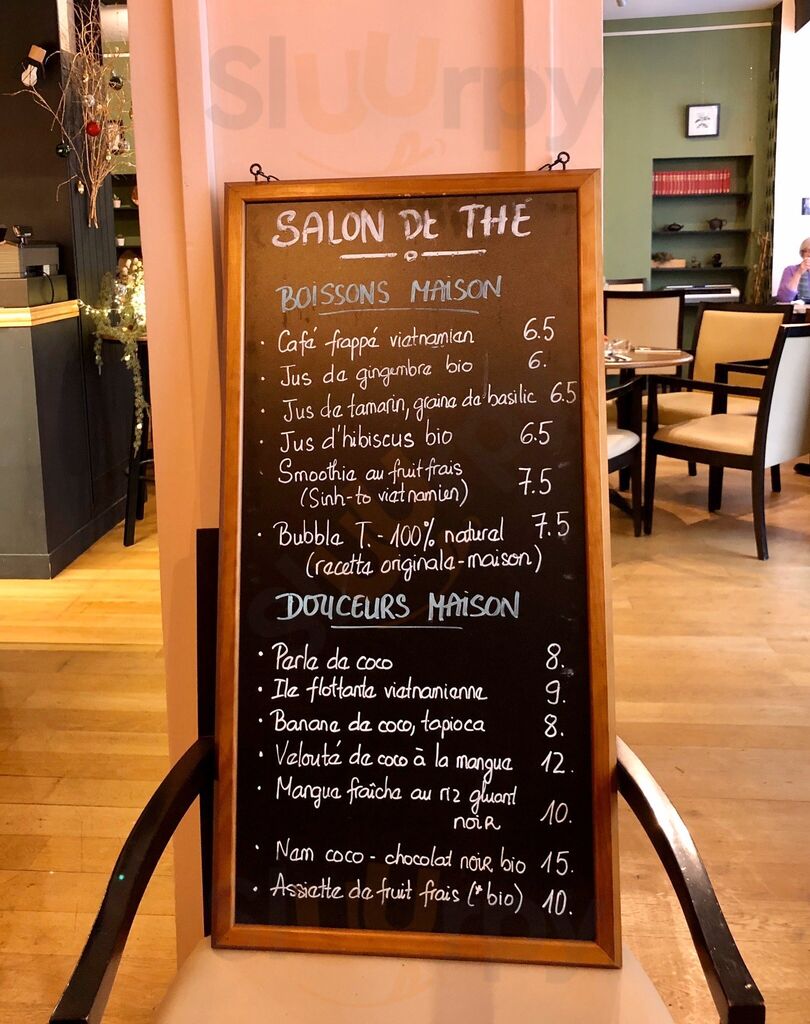 Sluurpy
SALON DE THE
BOISSONS MAISON
• Café frappé vietnamien 6.5
• Jus de gingembre bio 6.
• Jus de tamarin, graine de basilic 6.5
• Jus d'hibiscus bio 6.5
Smoothie au fruit frais 7.5
(Sinh-to vietnamien)
• Bubble T. - 100% natural 7.5
(recette originale-maison)
DOUCEURS MAISON
• Perle de coco 8.
• Ile flottante vietnamienne 9.
• Banane de coco, tapioca 8.
• Velouté de coco à la mangue 12.
• Mangue fraîche au riz gluant
noir 10.
• Nem coco - chocolat noir bio 15.
• Assiette de fruit frais (*bio) 10.